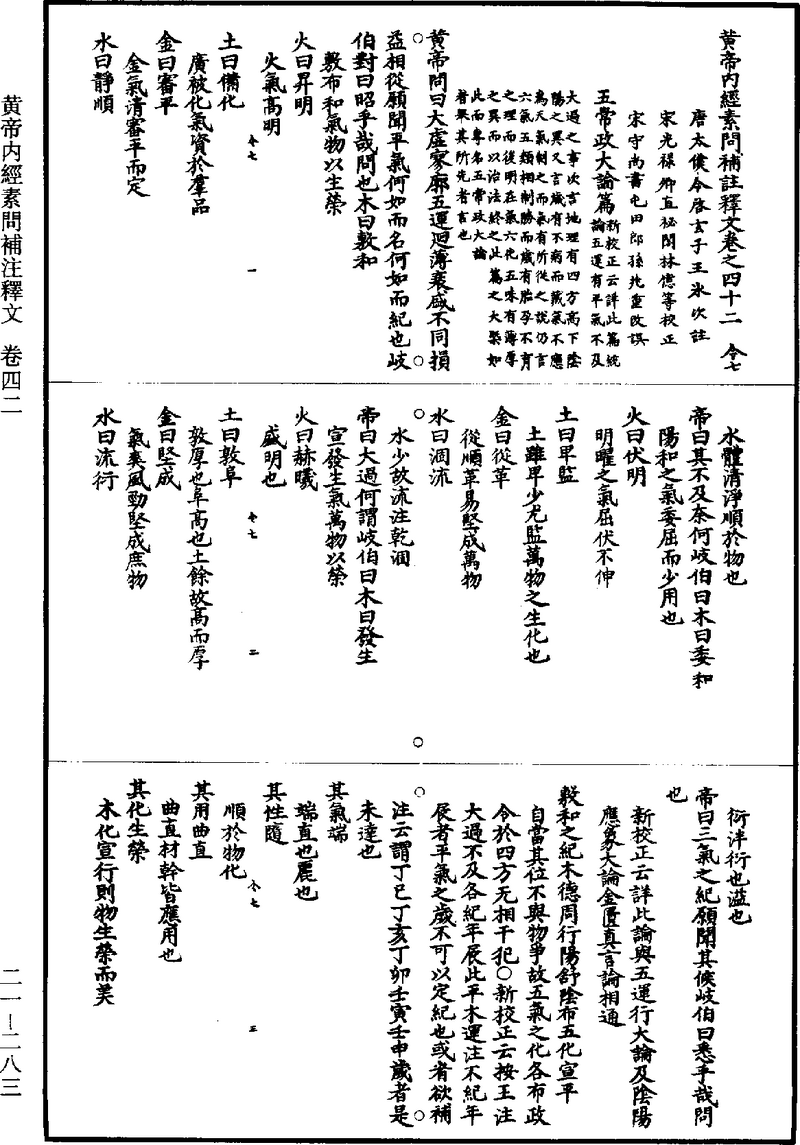 黃帝內經素問補註釋文卷之四十二　令七
唐太僕令啓玄子王氷次註
宋光祿卿直祕閣林億等校正
宋守尚書屯田郎孫兆重改誤
五常政大論篇新校正云詳此篇統
論五運有平氣不及
太過之事次言地理有四方高下陰
陽之異又言歲有不病而藏氣不應
為天氣制之而氣有所從之說仍言
六氣五類相制勝而歲有胎孕不育
之理而後明在氣六化五味有薄厚
之異而以治法終之此篇之大槩如
此而專名五常政大論
者舉其所先者言也
黃帝問曰大虛寥廓五運迴薄衰盛不同損
益相從願聞平氣何如而名何如而紀也岐
伯對曰昭乎哉問也木曰敷和
敷布和氣物以生榮
火曰昇明
火氣高明
土曰備化
廣被化氣資於羣品
金曰審平
金氣清審平而定
水曰靜順
令七　一
水體清淨順於物也
帝曰其不及奈何岐伯曰木曰委和
陽和之氣委屈而少用也
火曰伏明
明曜之氣屈伏不伸
土曰卑監
土雖卑少尤監萬物之生化也
金曰從革
從順革易堅成萬物
水曰涸流
水少故流注乾涸
帝曰大過何謂岐伯曰木曰發生
宣發生氣萬物以榮
火曰赫曦
盛明也
土曰敦阜
敦厚也阜高也土餘故高而厚
金曰堅成
氣爽風勁堅成庶物
水曰流衍
令七　二
衍泮衍也溢也
帝曰三氣之紀願聞其候岐伯曰悉乎哉問
也
新校正云詳此論與五運行大論及陰陽
應象大論金匱真言論相通
敷和之紀木德周行陽舒陰布五化宣平
自當其位不與物爭故五氣之化各布政
令於四方无相干犯○新校正云按王注
大過不及各紀年辰此平木運注不紀年
辰者平氣之歲不可以定紀也或者欲補
注云謂丁巳丁亥丁卯壬寅壬申歲者是
未達也
其氣端
端直也麗也
其性隨
順於物化
其用曲直
曲直材幹皆應用也
其化生榮
木化宣行則物生榮而美
令七　三
黄帝內經素問補注釋文　卷四二
二一—二八三